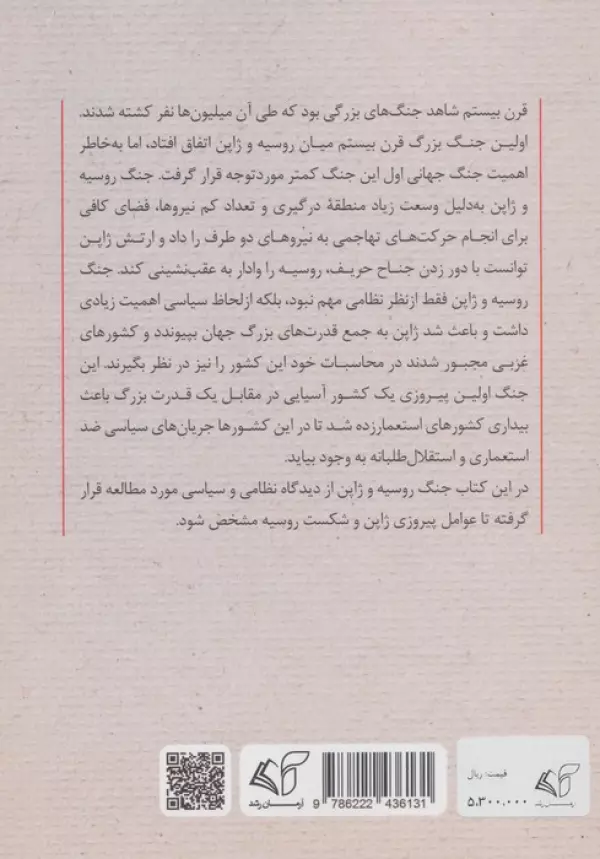 قرن بیستم شاهد جنگ‌های بزرگی بود که طی آن میلیون‌ها نفر کشته شدند.
اولین جنگ بزرگ قرن بیستم میان روسیه و ژاپن اتفاق افتاد، اما به‌خاطر
اهمیت جنگ جهانی اول این جنگ کمتر موردتوجه قرار گرفت. جنگ روسیه
و ژاپن به‌دلیل وسعت زیاد منطقهٔ درگیری و تعداد کم نیروها، فضای کافی
برای انجام حرکت‌های تهاجمی به نیروهای دو طرف را داد و ارتش ژاپن
توانست با دور زدن جناح حریف، روسیه را وادار به عقب‌نشینی کند. جنگ
روسیه و ژاپن فقط ازنظر نظامی مهم نبود، بلکه ازلحاظ سیاسی اهمیت زیادی
داشت و باعث شد ژاپن به جمع قدرت‌های بزرگ جهان بپیوندد و کشورهای
غربی مجبور شدند در محاسبات خود این کشور را نیز در نظر بگیرند. این
جنگ اولین پیروزی یک کشور آسیایی در مقابل یک قدرت بزرگ باعث
بیداری کشورهای استعمارزده شد تا در این کشورها جریان‌های سیاسی ضد
استعماری و استقلال‌طلبانه به وجود بیاید.
در این کتاب جنگ روسیه و ژاپن از دیدگاه نظامی و سیاسی مورد مطالعه قرار
گرفته تا عوامل پیروزی ژاپن و شکست روسیه مشخص شود.
آرمان رشد
9 786222 436131
قیمت: ریال
۵,۳۰۰,۰۰۰
آرمان رشد